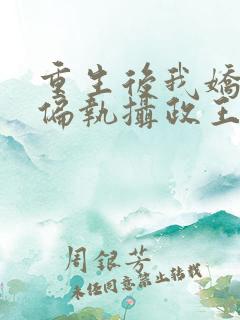 重生後我嬌
偏執攝政王
周銀芳
未經同意禁止轉載